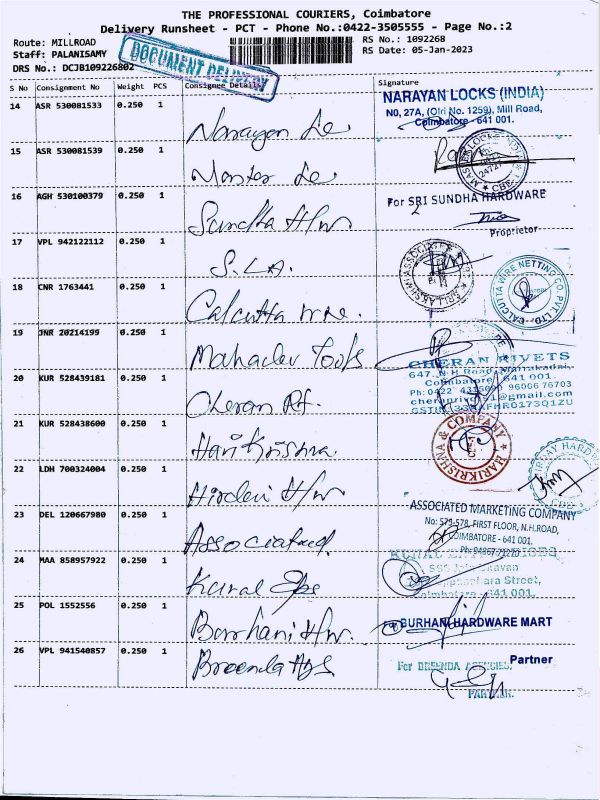 THE PROFESSIONAL COURIERS, Coimbatore
Delivery Runsheet - PCT - Phone No.:0422-3505555 - Page No.:2
Route: MILLROAD
RS No.: 1092268
Staff: PALANISAMY
RS Date: 05-Jan-2023
DRS No.: DCJB109226802
DOCUMENT DELIVERY
S No Consignment No Weight PCS Consignee Details Signature
14 ASR 530081533 0.250 1
Narayan Le
NARAYAN LOCKS (INDIA)
N0, 27A, (Old No. 1259), Mill Road,
Coimbatore - 641 001.
15 ASR 530081539 0.250 1
Master Le
16 AGH 530100379 0.250 1
Sundha H/w
For SRI SUNDHA HARDWARE
Proprietor
17 VPL 942122112 0.250 1
S.L.A.
18 CNR 1763441 0.250 1
Calcutta wire.
CALCUTTA WIRE NETTING CO. PVT LTD.
19 JNR 20214199 0.250 1
Mahadev Tools
20 KUR 528439181 0.250 1
Cheran Rt.
CHERAN RIVETS
647, N.H Road,
Coimbatore 641 001.
21 KUR 528438600 0.250 1
Hari Krishna.
HARIKRISHNA & COMPANY
22 LDH 700324004 0.250 1
Hirdevi H/w
23 DEL 120667980 0.250 1
Associated.
ASSOCIATED MARKETING COMPANY
No: 573-578, FIRST FLOOR, N.H.ROAD,
COIMBATORE - 641 001.
24 MAA 858957922 0.250 1
Kural Eps
Coimbatore 641 001.
25 POL 1552556 0.250 1
Burhani H/w.
For BURHANI HARDWARE MART
Partner
26 VPL 941540857 0.250 1
Breenda Ags
For BREENDA AGENCIES,
PARTNER.